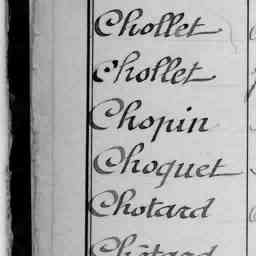 Chollet
Chollet
Chopin
Choquet
Chotard
Chotard